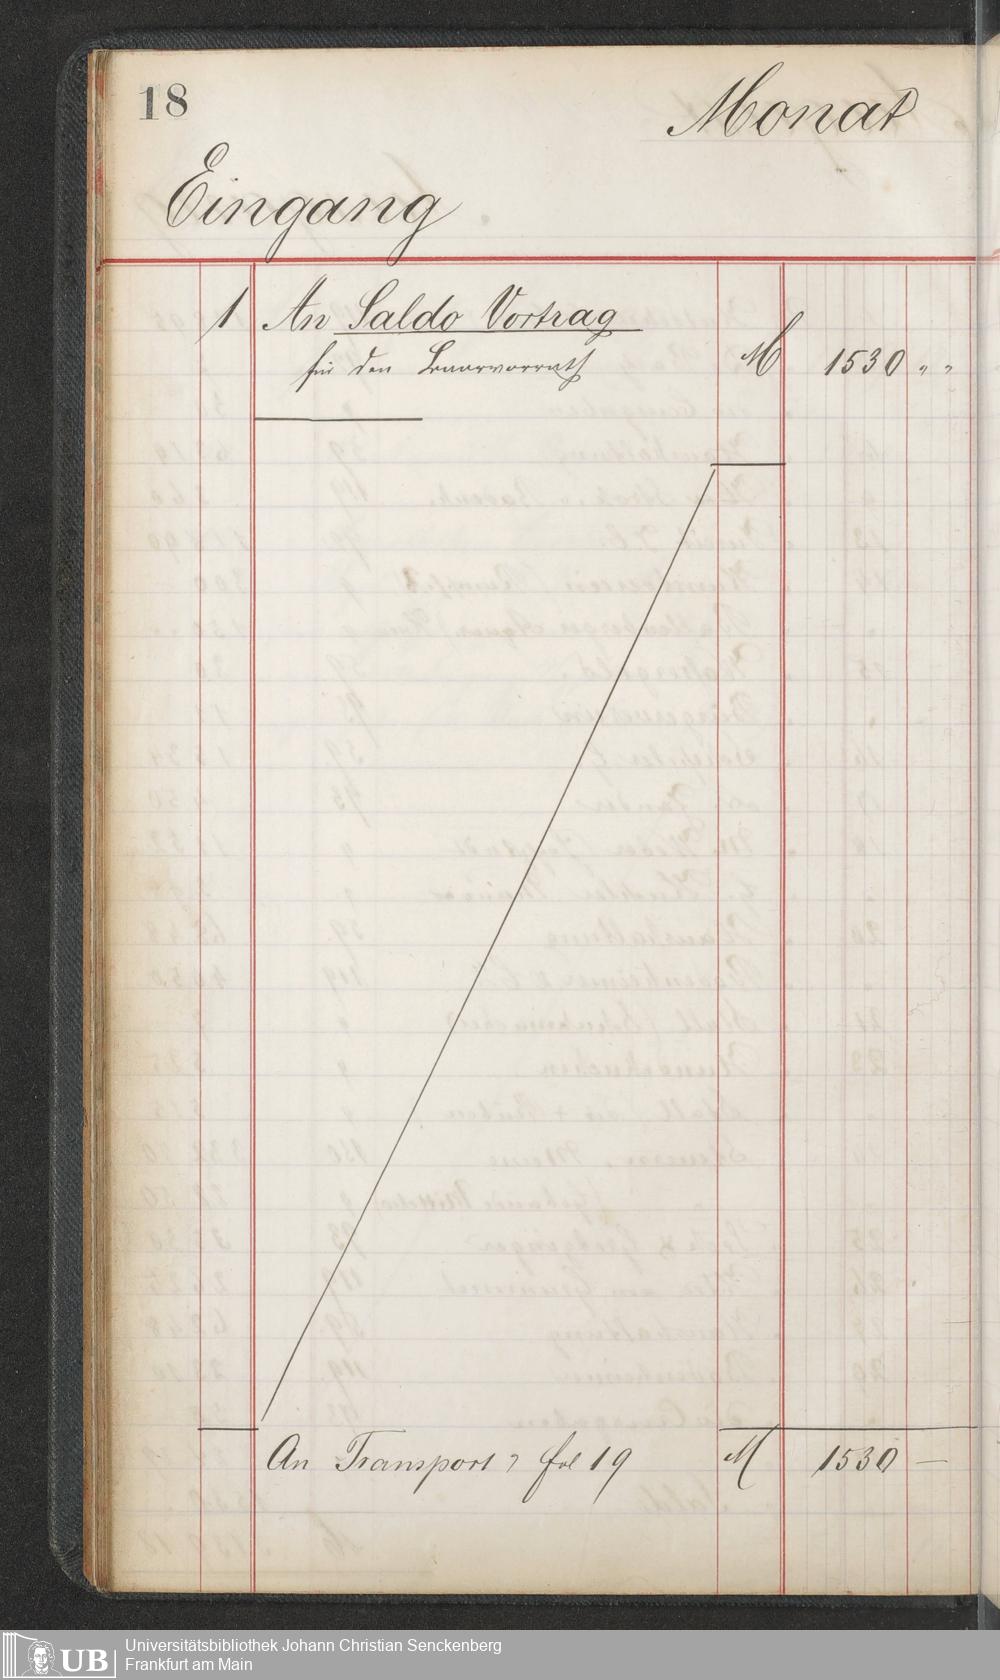 18
Monat
Eingang
1 An Saldo Vortrag
für den Baarvorrath M 1530 " "
An Transport fol 19 M 1530 —
UB
Universitätsbibliothek Johann Christian Senckenberg
Frankfurt am Main